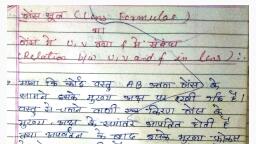 लेंस सूत्र (Lens Formulae)
या
लेंस में u, v तथा f में संबंध
(Relation b/w u, v and f in lens):-
माना कि कोई वस्तु AB उत्तल लेंस के
सामने उसके मुख्य अक्ष पर रखी गई है।
वस्तु से चलने वाली प्रकाश किरण लेंस के
मुख्य अक्ष के समांतर आपतित होती है
तथा अपवर्तन के बाद उसके मुख्य फोकस